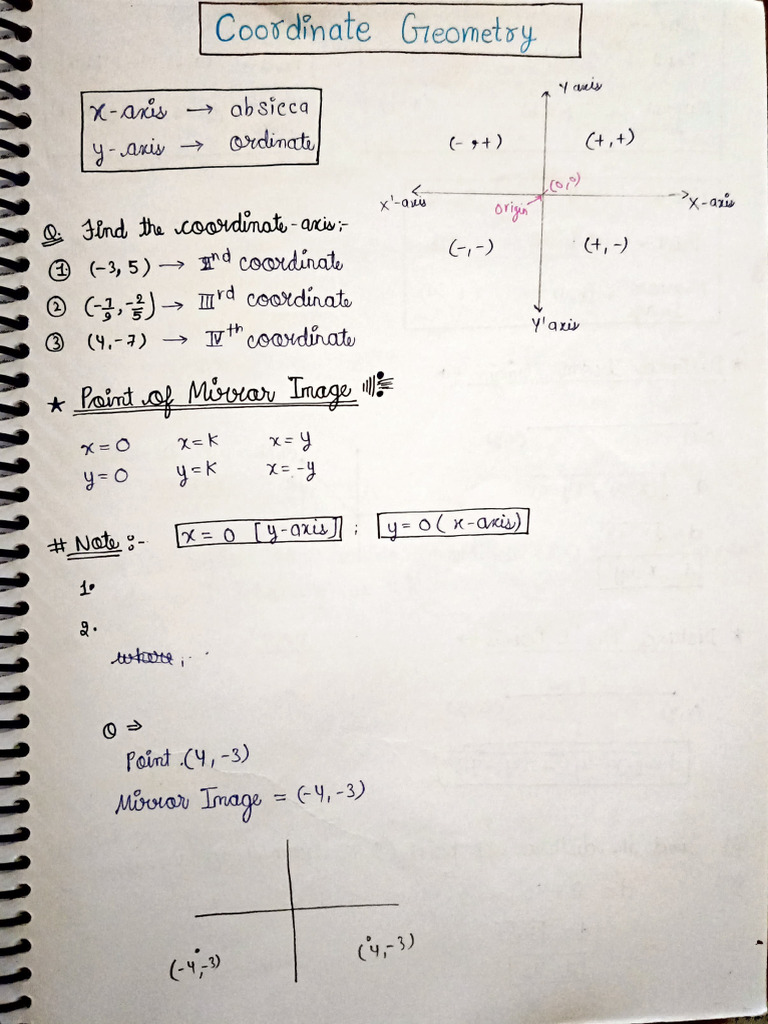 Coordinate Geometry
x-axis → absicca
y-axis → ordinate
Y axis
(-,+) (+,+)
X'-axis (0,0) X-axis
Origin
(-,-) (+,-)
Y' axis
Q. Find the coordinate-axis:-
① (-3, 5) → IInd coordinate
② (-7/9, -2/5) → IIIrd coordinate
③ (4,-7) → IVth coordinate
★ Point of Mirror Image
x=0 x=K x=y
y=0 y=K x=-y
# Note:- x=0 [y-axis] ; y=0 (x-axis)
1.
2.
where,
Q ⇒
Point (4,-3)
Mirror Image = (-4,-3)
(-4,-3) (4,-3)